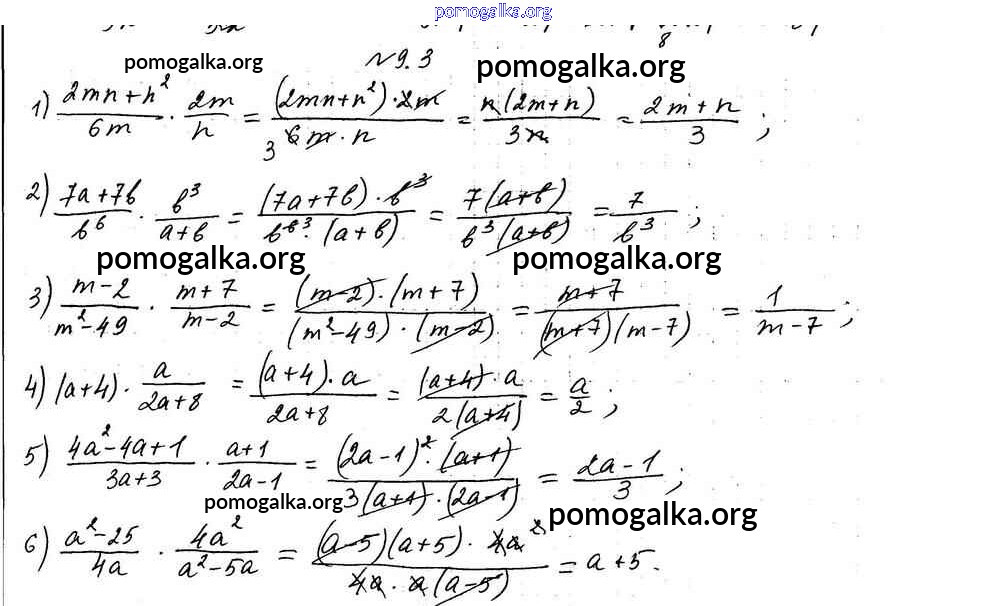 pomogalka.org
8
N 9.3
pomogalka.org pomogalka.org
1) (2mn+n²)/(6m) · (2m)/(n) = ((2mn+n²)·2m)/(3 6m·n) = (n(2m+n))/(3n) = (2m+n)/3 ;
2) (7a+7b)/(b⁶) · (b³)/(a+b) = ((7a+7b)·b³)/(b⁶ ³·(a+b)) = (7(a+b))/(b³(a+b)) = 7/(b³) ;
pomogalka.org pomogalka.org
3) (m-2)/(m²-49) · (m+7)/(m-2) = ((m-2)·(m+7))/((m²-49)·(m-2)) = (m+7)/((m+7)(m-7)) = 1/(m-7) ;
4) (a+4) · a/(2a+8) = ((a+4)·a)/(2a+8) = ((a+4)·a)/(2(a+4)) = a/2 ;
5) (4a²-4a+1)/(3a+3) · (a+1)/(2a-1) = ((2a-1)²·(a+1))/(3(a+1)·(2a-1)) = (2a-1)/3 ;
pomogalka.org pomogalka.org
6) (a²-25)/(4a) · (4a²)/(a²-5a) = ((a-5)(a+5)·4a²)/(4a·a(a-5)) = a+5.